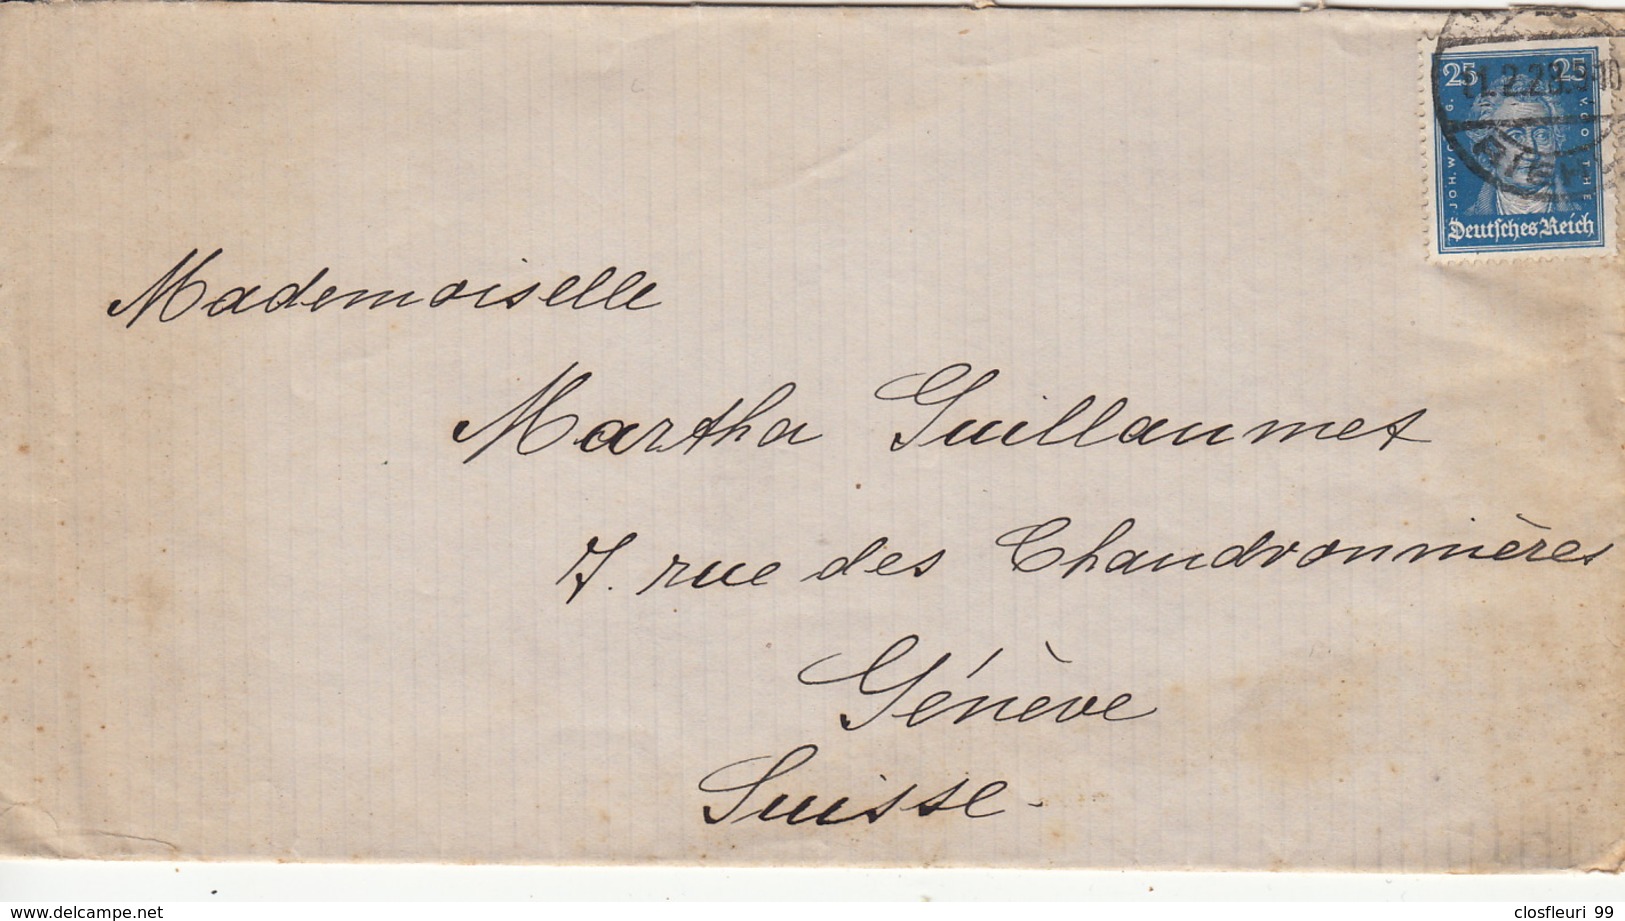 25 25
JOH. WOLFG. V. GOETHE
Deutsches Reich
Mademoiselle
Martha Guillaumet
7. rue des Chaudronnières
Génève
Suisse.
www.delcampe.net
closfleuri 99